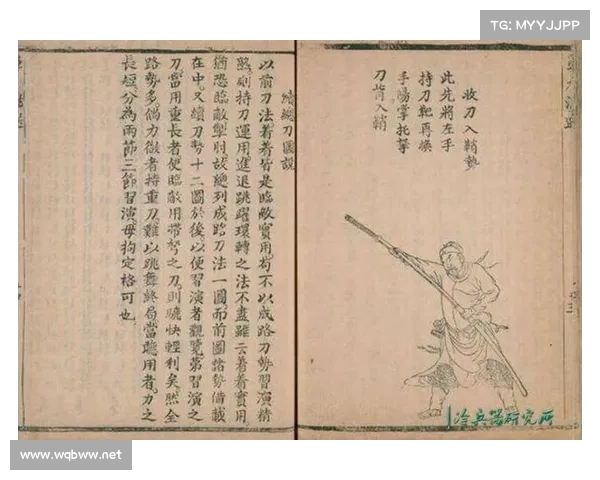 TG: MYYJJPP
收刀入鞘勢
此先將左手
持刀靶再換
手陽掌托拏
刀背入鞘
續總刀圖說
以前刀法著著皆是臨敵實用苟不以成路刀勢習演精
熟則持刀運用進退跳躍環轉之法不盡雖云著著實用
猶恐臨敵掣肘故總列成路刀法一圖而前圖諸勢備載
在中又續刀勢十二圖於後以便習演者觀覽第習演之
刀當用重長者使臨敵用帶之刀則驍快輕利矣然全
路勢多偶力微者持重刀難以跳舞終局當聽用者力之
長短分為兩節三節習演毋拘定格可也
冷兵器研究所
www.wqbww.net